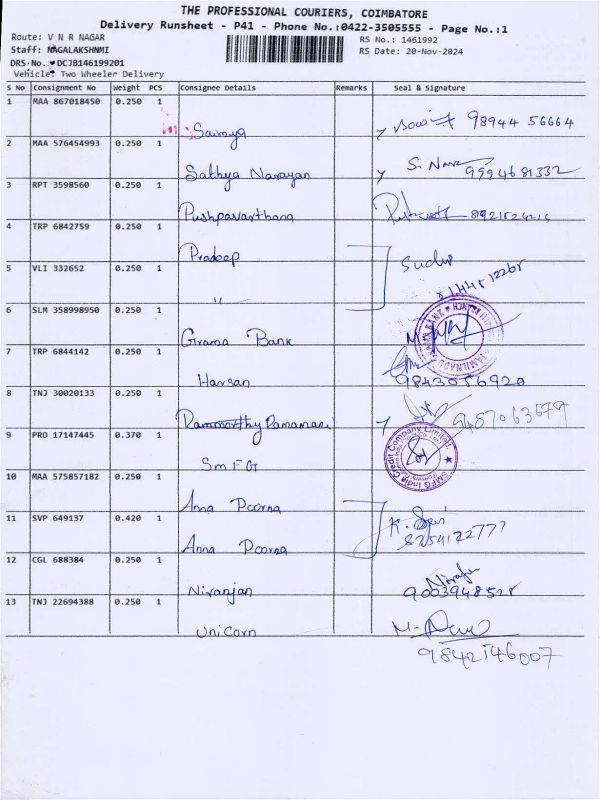 THE PROFESSIONAL COURIERS, COIMBATORE
Delivery Runsheet - P41 - Phone No.:0422-3505555 - Page No.:1
Route: V N R NAGAR
RS No.: 1461992
Staff: NAGALAKSHNMI
RS Date: 20-Nov-2024
DRS No. DCJB146199201
Vehicle: Two Wheeler Delivery
S No Consignment No Weight PCS Consignee Details Remarks Seal & Signature
1 MAA 867018450 0.250 1
Sowmya 98944 56664
2 MAA 576454993 0.250 1
Sathya Narayan S. 9994681332
3 RPT 3598560 0.250 1
Pushpavarthana
4 TRP 6842759 0.250 1
Pradeep
5 VLI 332652 0.250 1
"
6 SLM 358998950 0.250 1
Grama Bank
7 TRP 6844142 0.250 1
Harsan 9843056920
8 TNJ 30020133 0.250 1
9 PRO 17147445 0.370 1
SMFG SMFG India Credit Company Limited
10 MAA 575857182 0.250 1
Anna Poorna
11 SVP 649137 0.420 1
Anna Poorna K.
12 CGL 688384 0.250 1
Niranjan
13 TNJ 22694388 0.250 1
Unicorn
9842146007